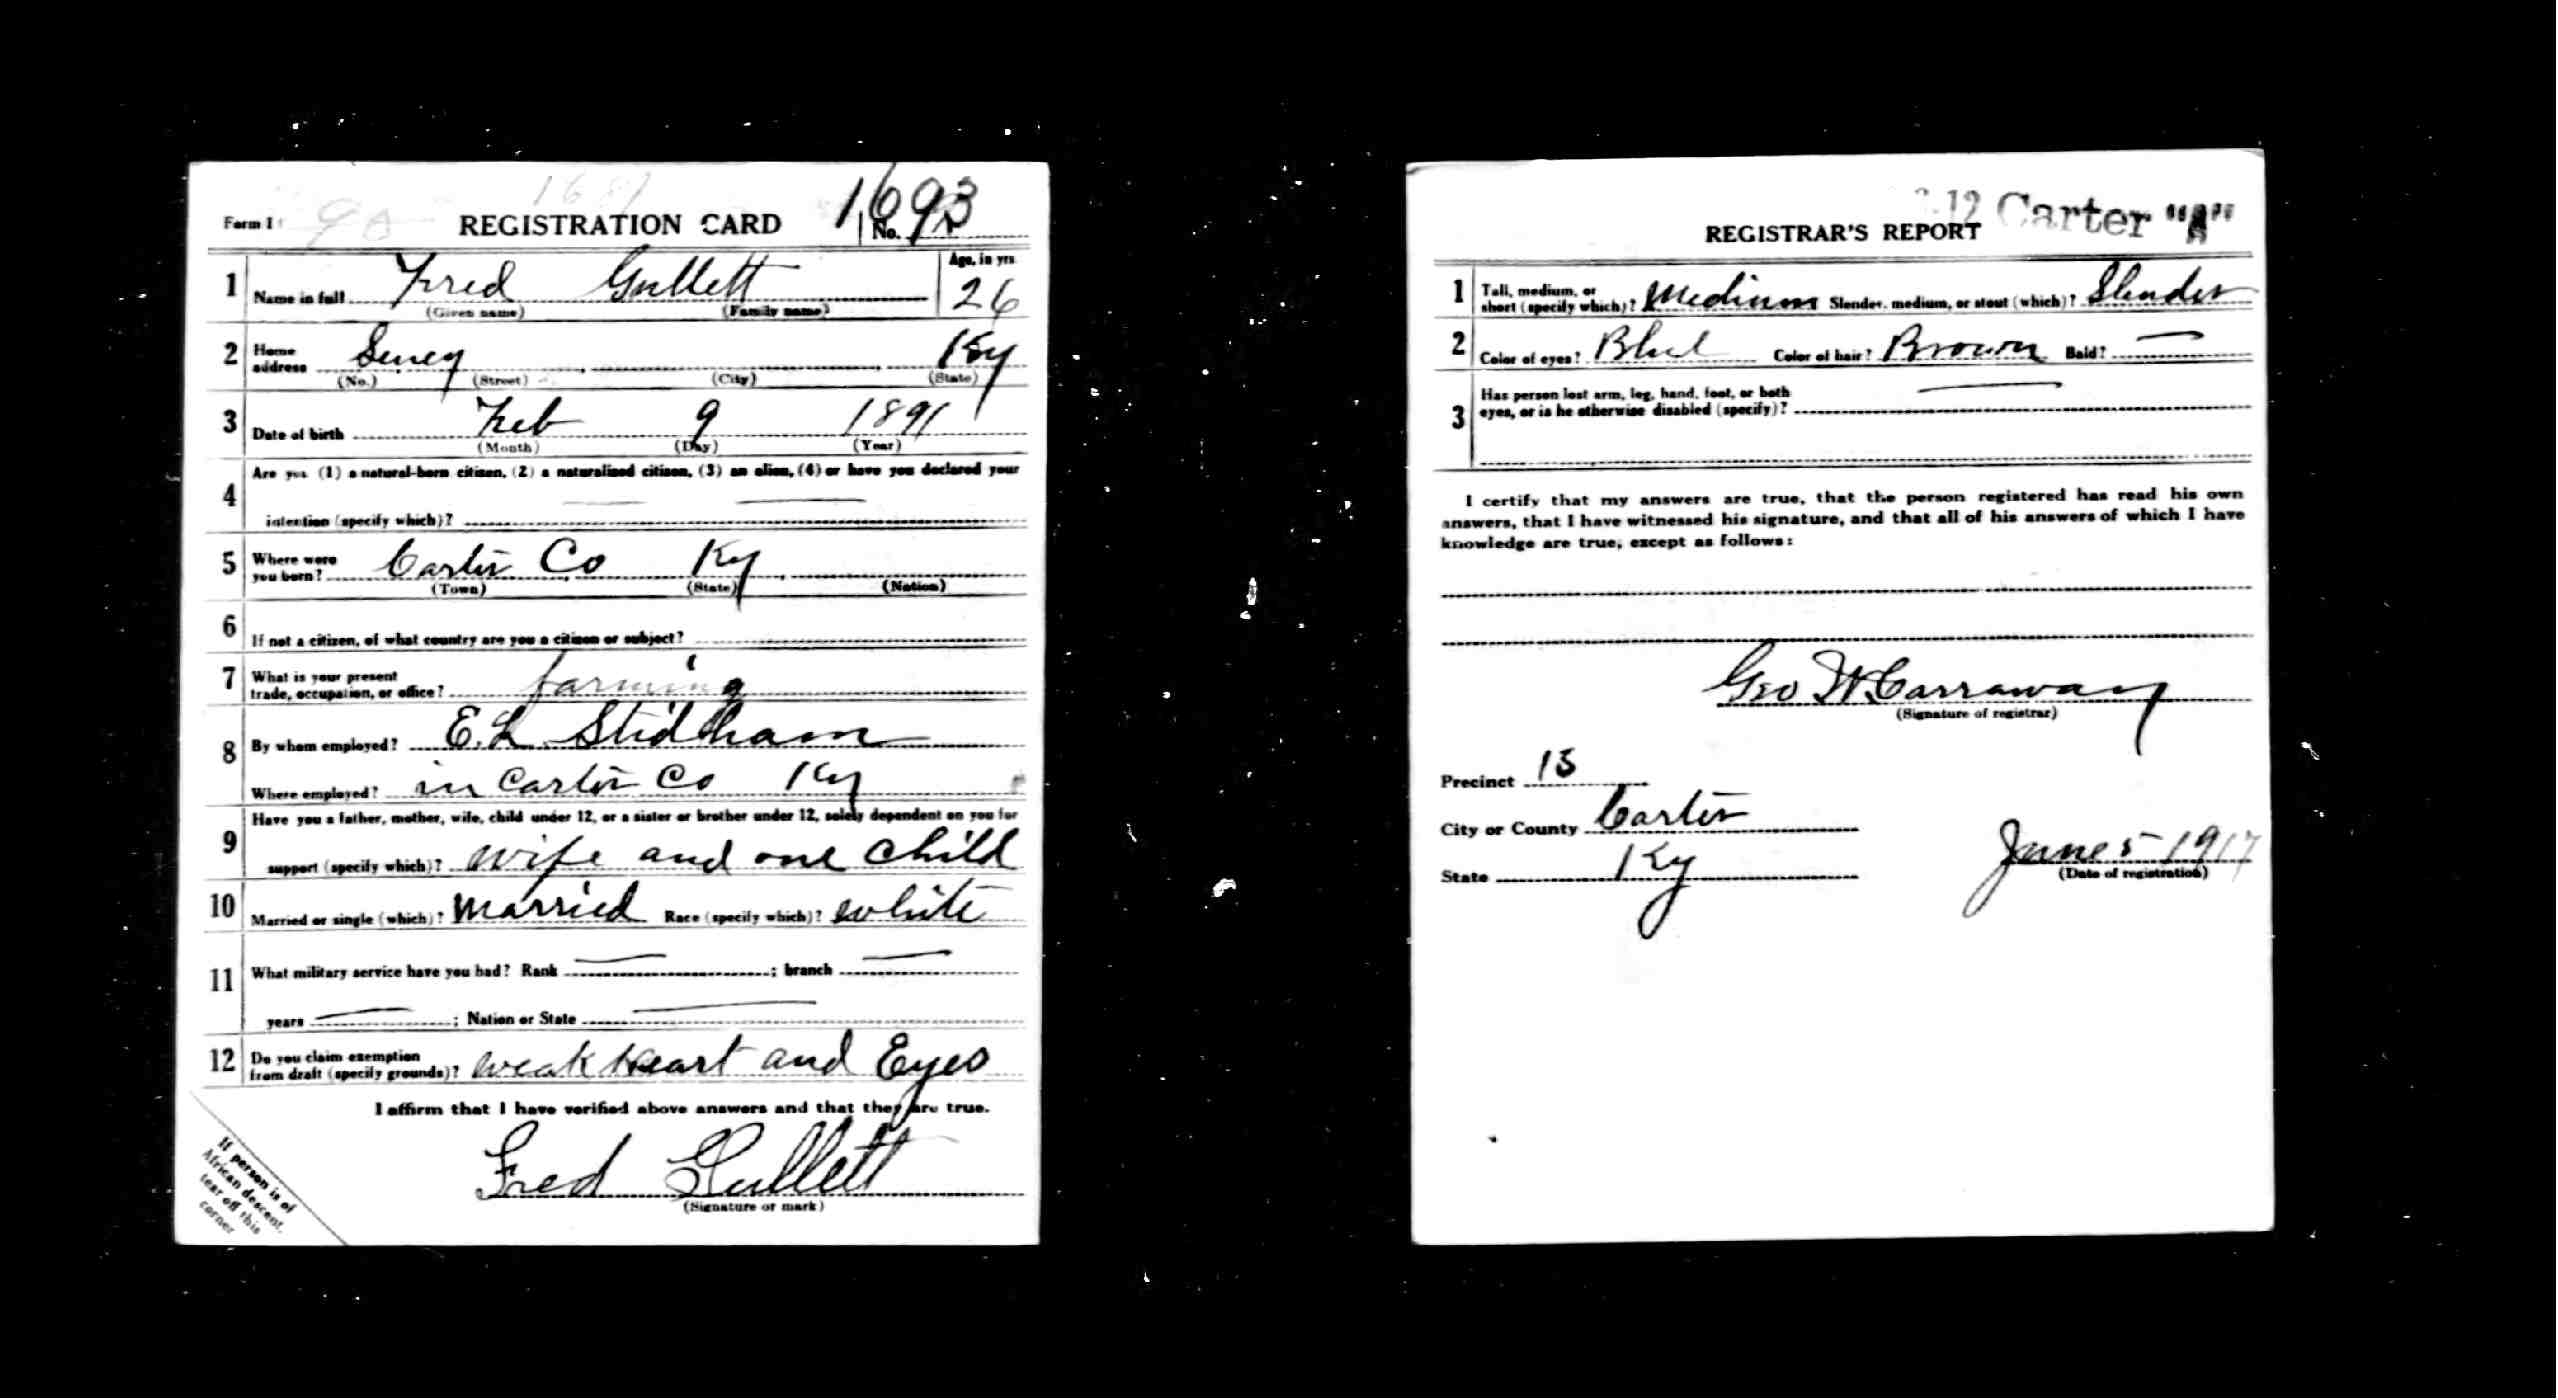 1693
Form 1 REGISTRATION CARD No.
1 Name in full Fred Gullett Age, in yrs. 26
(Given name) (Family name)
2 Home address Seney Ky
(No.) (Street) (City) (State)
3 Date of birth Feb 9 1891
(Month) (Day) (Year)
4 Are you (1) a natural-born citizen, (2) a naturalized citizen, (3) an alien, (4) or have you declared your
intention (specify which)?
5 Where were you born? Carter Co Ky
(Town) (State) (Nation)
6 If not a citizen, of what country are you a citizen or subject?
7 What is your present
trade, occupation, or office? farming
8 By whom employed? E.L. Stidham
Where employed? in Carter Co Ky
9 Have you a father, mother, wife, child under 12, or a sister or brother under 12, solely dependent on you for
support (specify which)? wife and one child
10 Married or single (which)? Married Race (specify which)? white
11 What military service have you had? Rank ; branch
years ; Nation or State
12 Do you claim exemption
from draft (specify grounds)? weak heart and Eyes
I affirm that I have verified above answers and that they are true.
Fred Gullett
(Signature or mark)
If person is of
African descent,
tear off this
corner
12 Carter "A"
REGISTRAR'S REPORT
1 Tall, medium, or
short (specify which)? Medium Slender, medium, or stout (which)? Slender
2 Color of eyes? Blue Color of hair? Brown Bald?
3 Has person lost arm, leg, hand, foot, or both
eyes, or is he otherwise disabled (specify)?
I certify that my answers are true, that the person registered has read his own
answers, that I have witnessed his signature, and that all of his answers of which I have
knowledge are true, except as follows:
Geo W Carraway
(Signature of registrar)
Precinct 13
City or County Carter
State Ky
June 5 1917
(Date of registration)